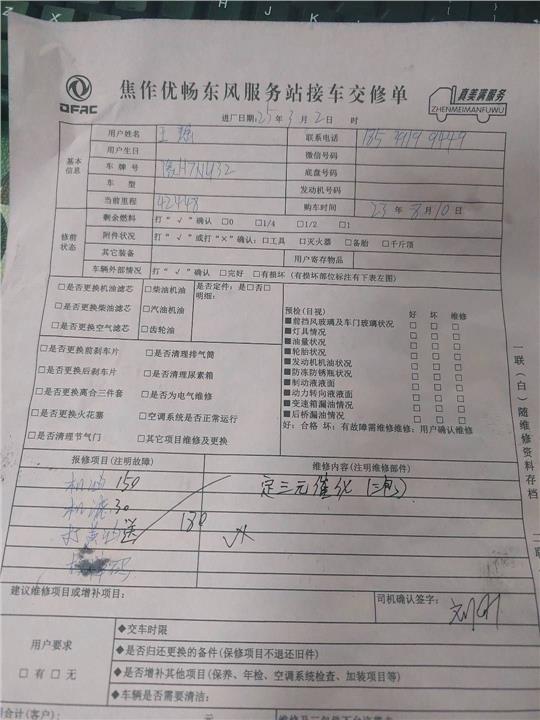 DFAC
焦作优畅东风服务站接车交修单
真美满服务
ZHENMEIMANFUWU
进厂日期:25年3月2日 时
基本信息
用户姓名 王 联系电话
用户生日 微信号码
车牌号 豫H7N432 底盘号码
车型 发动机号码
当前里程 42448 购车时间 23年8月10日
修前状态
剩余燃料 打“√”确认 □0 □1/4 □1/2 □1
附件状况 打“√”或打“×”确认:□工具 □灭火器 □备胎 □千斤顶
其它装备 用户寄存物品
车辆外部情况 打“√”确认 □完好 □有损坏 (有损坏部位标注有下表左图)
□是否更换机油滤芯 □柴油机油
□是否更换柴油滤芯 □汽油机油
□是否更换空气滤芯 □齿轮油
是否定件:是□否□
明细:
□是否更换前刹车片 □是否清理排气筒
□是否更换后刹车片 □是否清理尿素箱
□是否更换离合三件套 □是否为电气维修
□是否更换火花塞 □空调系统是否正常运行
□是否清理节气门 □其它项目维修及更换
预检(目视) 好 坏 维修
■前挡风玻璃及车门玻璃状况 □ □ □
■灯具情况 □ □ □
■油量状况 □ □ □
■轮胎状况 □ □ □
■发动机机油状况 □ □ □
■防冻防锈瓶状况 □ □ □
■制动液液面 □ □ □
■动力转向液液面 □ □ □
■变速箱漏油情况 □ □ □
■后桥漏油情况 □ □ □
好:合格 坏:有故障需维修维修:用户确认维修
一联(白)随维修资料存档
二联
报修项目(注明故障) 维修内容(注明维修部件)
机油 150 定三元催化(三包)
机滤 30
打黄油 送 180
码
建议维修项目或增补项目: 司机确认签字:
用户要求
□有 □无
◆交车时限
◆是否归还更换的备件(保修项目不退还旧件)
◆是否增补其他项目(保养、年检、空调系统检查、加装项目等)
◆车辆是否需要清洁:
合计(客户): 元